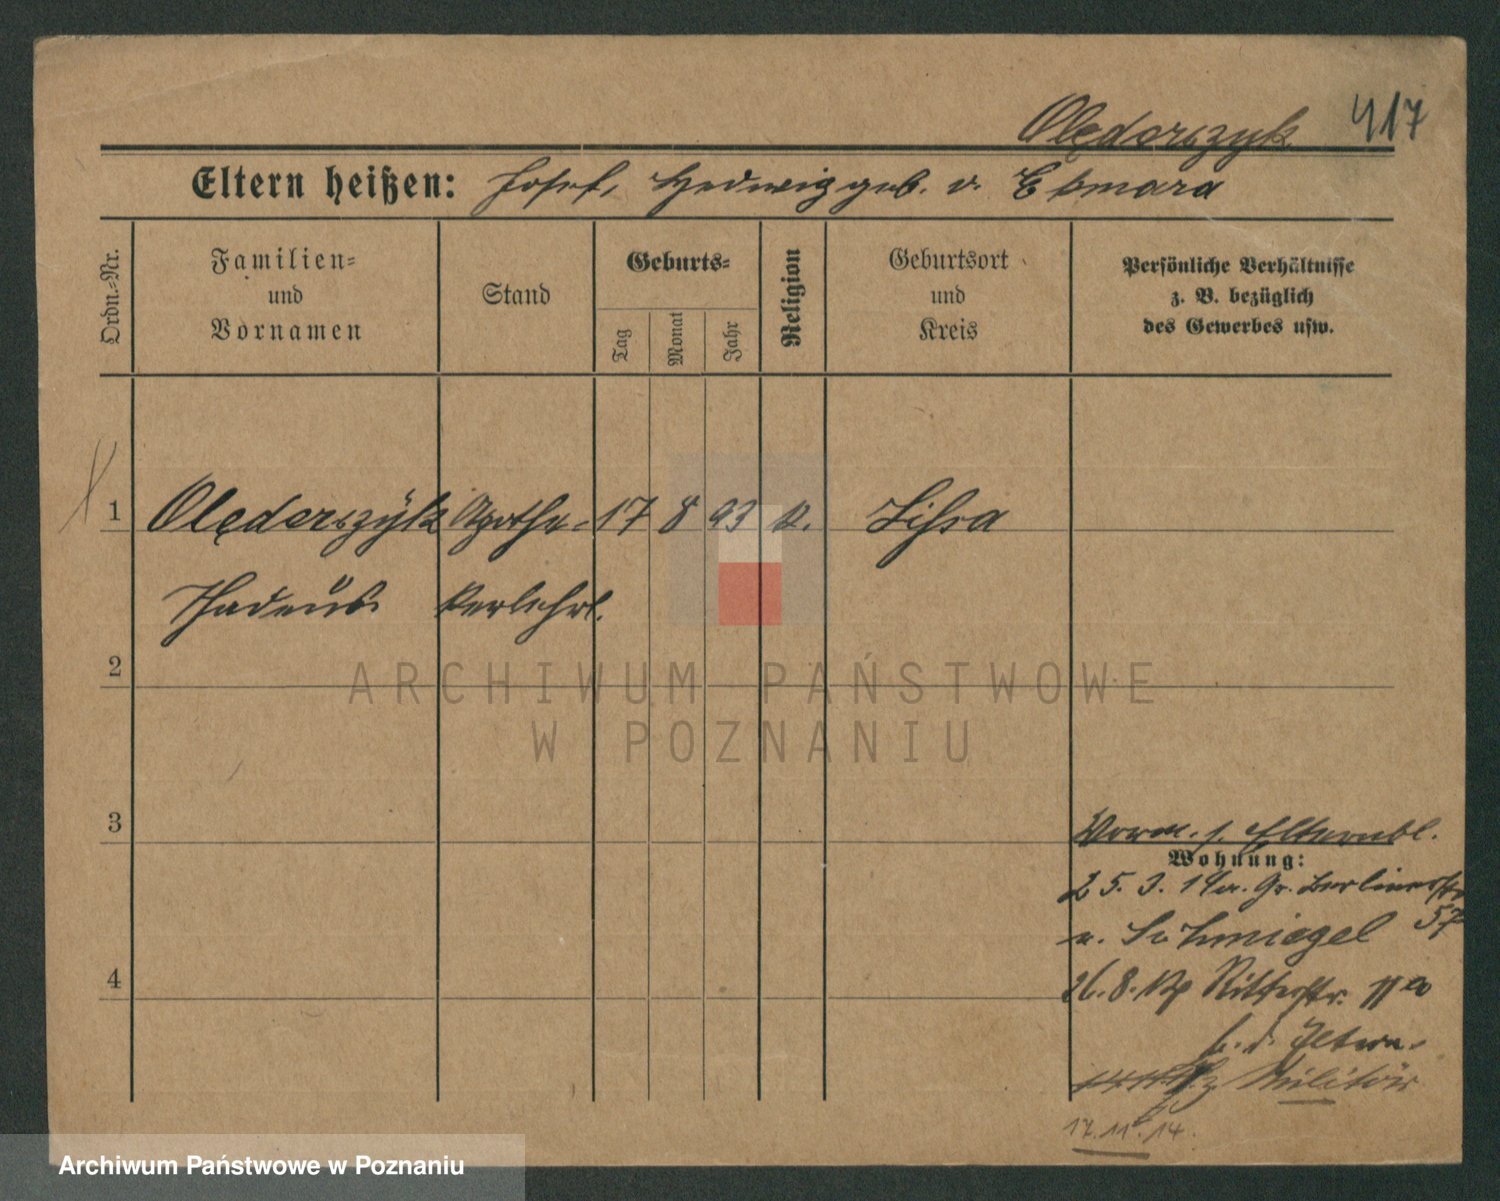 Olęderszyk 417
Eltern heißen: Josef, Hedwig geb. v. Ekmara
Ordn.-Nr.
Familien-
und
Vornamen
Stand
Geburts-
Tag
Monat
Jahr
Religion
Geburtsort
und
Kreis
Persönliche Verhältnisse
z. B. bezüglich
des Gewerbes usw.
1 Olęderszÿk Apothe- 17 8 93 k. Lissa
Thadeus kerlehrl.
2
ARCHIWUM PAŃSTWOWE
W POZNANIU
3
Vorm. s. Elternbl.
Wohnung:
25. 3. Gr. Berlinerstr
57
n. Schmiegel
4
26. 8. Ritterstr. 11a
b. d. Eltern.
z Militär
17.11.14.
Archiwum Państwowe w Poznaniu